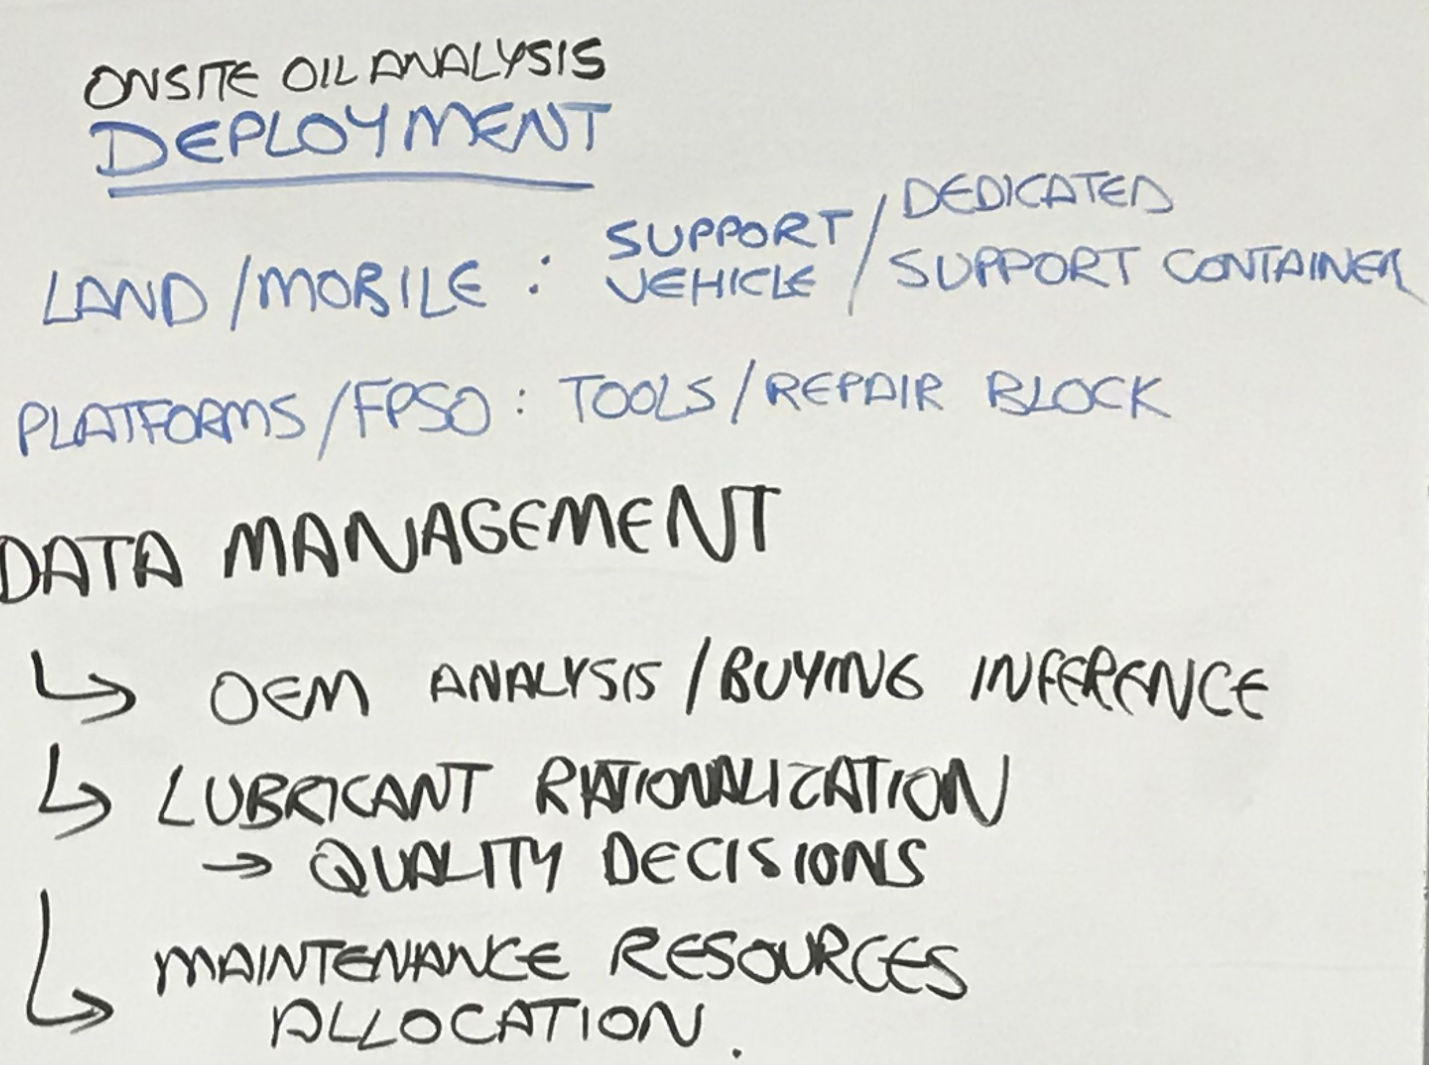 ONSITE OIL ANALYSIS
DEPLOYMENT
LAND / MOBILE : SUPPORT VEHICLE / DEDICATED SUPPORT CONTAINER
PLATFORMS / FPSO : TOOLS / REPAIR BLOCK
DATA MANAGEMENT
↳ OEM ANALYSIS / BUYING INFERENCE
↳ LUBRICANT RATIONALIZATION
→ QUALITY DECISIONS
↳ MAINTENANCE RESOURCES
ALLOCATION.